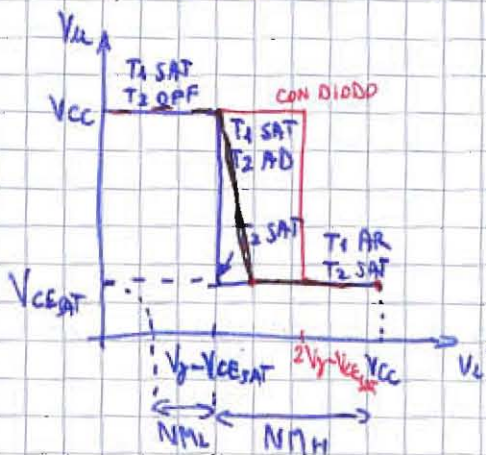 Vu
T1 SAT
T2 OFF
VCC
CON DIODO
T1 SAT
T2 AD
T2 SAT
T1 AR
T2 SAT
VCESAT
Vγ-VCESAT
2Vγ-VCESAT
VCC
Vi
NML
NMH